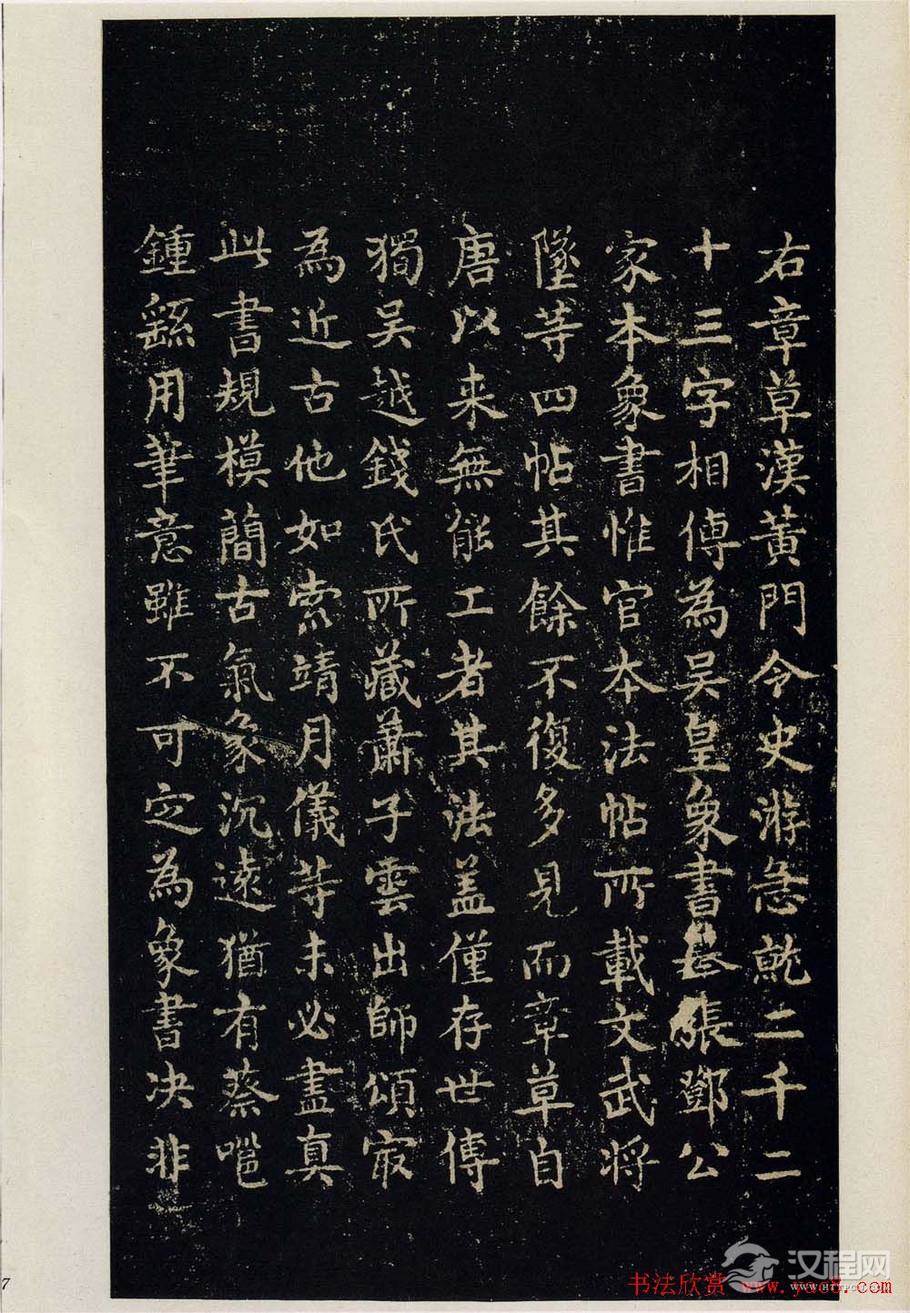 右章草漢黃門令史游急就二千二
十三字相傳為吳皇象書張鄧公
家本象書惟官本法帖所載文武將
墜等四帖其餘不復多見而章草自
唐以来無能工者其法盖僅存世傳
獨吳越錢氏所藏蕭子雲出師頌㝡
為近古他如索靖月儀等未必盡真
此書規模簡古氣象沉遠猶有蔡邕
鍾繇用筆意雖不可定為象書决非
7
汉程网
书法欣赏